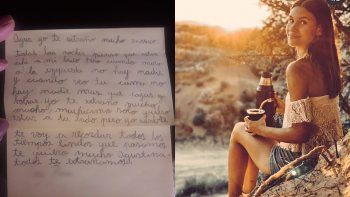 Agus yo te extraño mucho
todas las noches pienso que estas
a mi lado pero cuando miro
a la izquierda no hay nadie
y cuando veo tu cama no
hay nadie mas que cajas y
yo te extraño mucho
mucho muchisimo solo quiero
estar a tu lado pero
te voy a recordar todos los
tiempos lindos que pasamos
te quiero mucho Agustina
todos te extrañamos